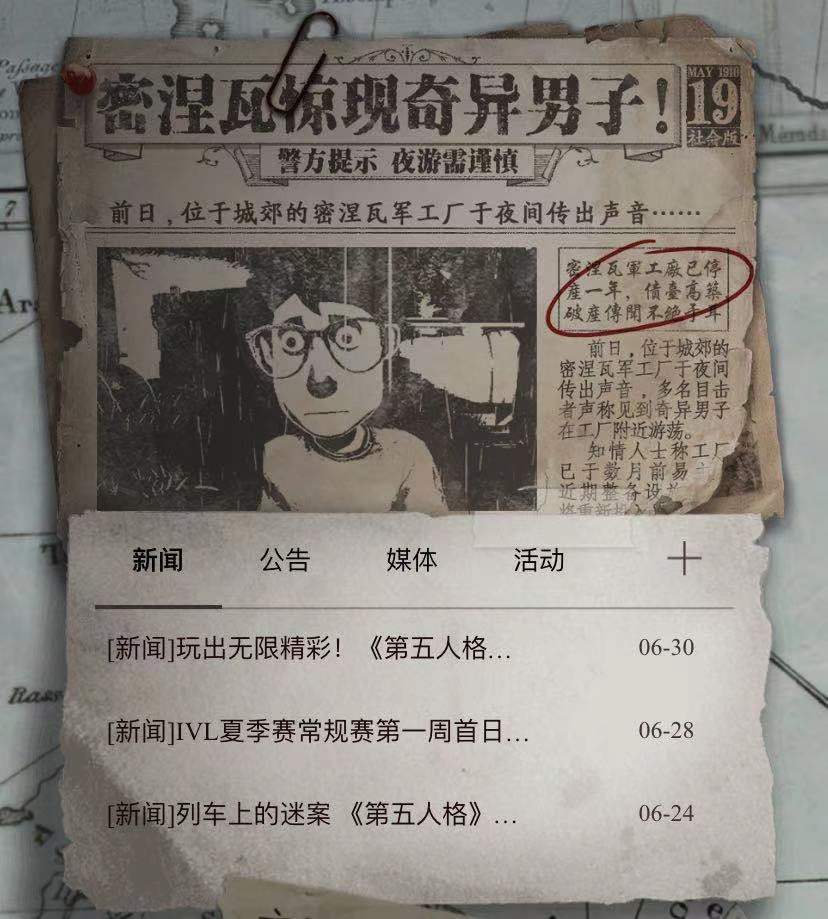 密涅瓦惊现奇异男子！
MAY 1910
19
社会版
警方提示 夜游需谨慎
前日，位于城郊的密涅瓦军工厂于夜间传出声音……
密涅瓦軍工廠已停
産一年，債臺高築
破産傳聞不絶于耳
前日，位于城郊的
密涅瓦军工厂于夜间
传出声音，多名目击
者声称见到奇异男子
在工厂附近游荡。
知情人士称工厂
已于数月前易
近期整备设
将重新投入
新闻
公告
媒体
活动
[新闻]玩出无限精彩！《第五人格…
06-30
[新闻]IVL夏季赛常规赛第一周首日…
06-28
[新闻]列车上的迷案 《第五人格》…
06-24